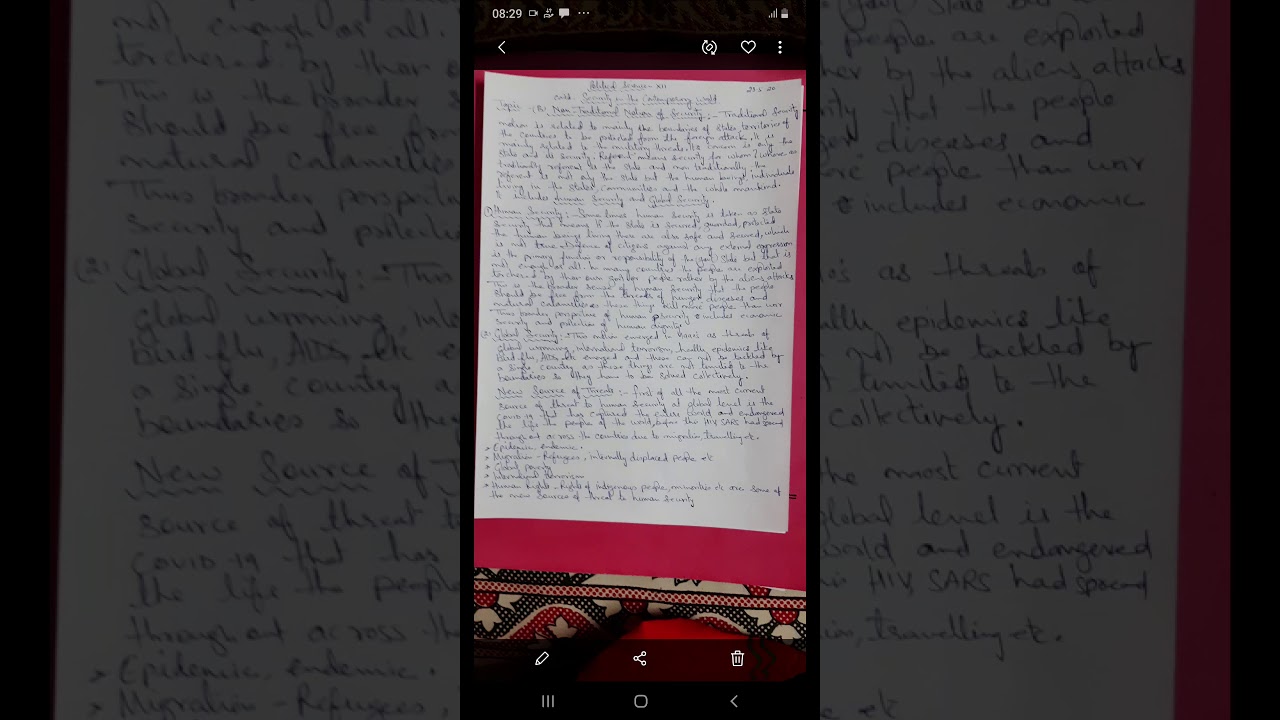 08:29
Political Science - XII
29-5-20
Contd. Security in the Contemporary World
Topic - (B) Non-Traditional Notion of Security :- Traditional Security
notion is related to mainly the boundaries of states, territories of
the countries to be protected from the foreign attack, it is
mainly related to the military threats. It's concern is only the
state and its security. Referent means security for whom? where as
traditionally referent is the state and non traditionally the
referent is not only the state but the human beings, individuals
living in the states, communities and the whole mankind.
It includes Human Security and Global Security.
(1) Human Security :- Some times human security is taken as state
security that means if the state is secured, guarded, protected
the human beings living there are also safe and secured, which
is not true. Defence of citizens against any external aggression
is the primary function or responsibility of the (gov) State but that is
not enough or all. In many countries the people are exploited
torchered by thier own people rather by the aliens attacks
This is the broader sense of human security that the people
should be free from the threats of hunger diseases and
natural calamities as these things kill more people than war
Thus broader perspective of human security includes economic
security and protection of human dignity.
(2) Global Security :- This notion emerged in 1990's as threats of
global warming, international terrorism, health epidemics like
Bird flu, AIDs etc emerged and these can not be tackled by
a single country as these things are not limited to the
boundaries so they have to be solved collectively.
New Source of Threats :- first of all the most current
source of threat to human security at global level is the
COVID-19 that has captured the entire world and endangered
the life the people of the world, before this HIV, SARS had spread
throughout across the countries due to migration, travelling etc.
> Epidemic, endemic.
> Migration - Refugees, internally displaced people etc
> Global poverty
> International terrorism
> Human Rights - Rights of indigenous people, minorities etc are some of
the new sources of threat to human security